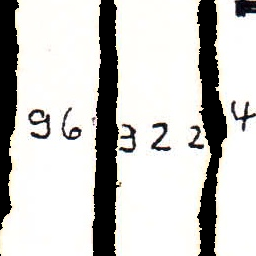 96 322 4